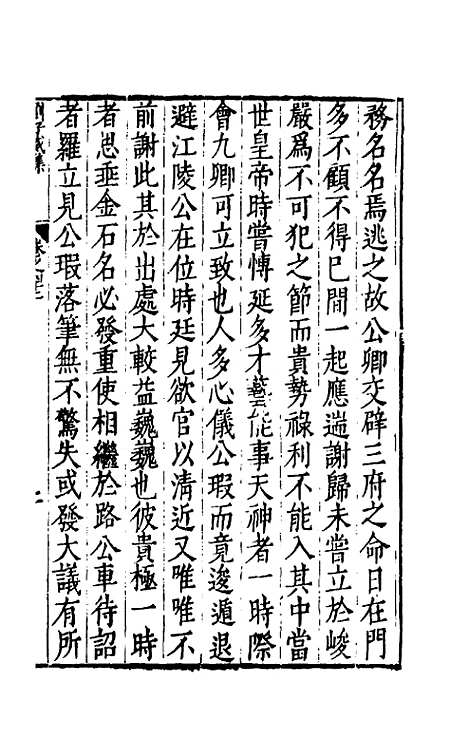 務名名焉逃之故公卿交辟三府之命日在門
多不顧不得已間一起應遄謝歸未嘗立於峻
嚴爲不可犯之節而貴勢祿利不能入其中當
世皇帝時嘗愽延多才藝能事天神者一時際
會九卿可立致也人多心儀公瑕而竟逡遁退
避江陵公在位時廷見欲官以清近又唯唯不
前謝此其於出處大較益巍巍也彼貴極一時
者思垂金石名必發重使相繼於路公車待詔
者羅立見公瑕落筆無不驚失或發大議有所